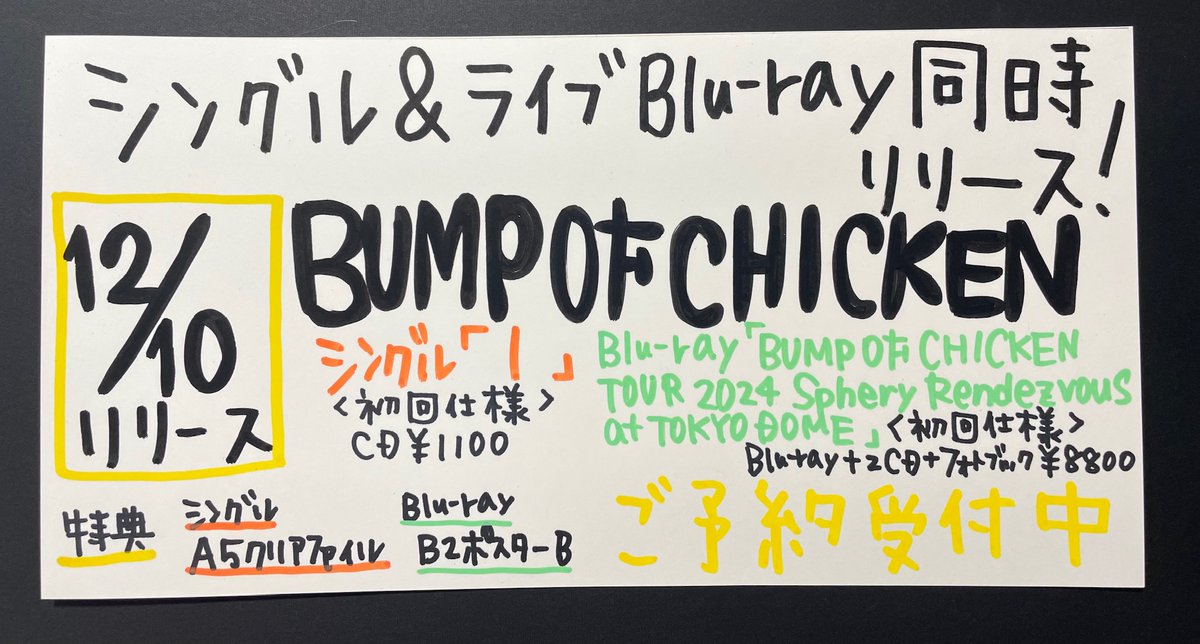 シングル&ライブBlu-ray同時
リリース!
12/10
リリース
BUMP OF CHICKEN
シングル「I」
<初回仕様>
CD¥1100
Blu-ray「BUMP OF CHICKEN
TOUR 2024 Sphery Rendezvous
at TOKYO DOME」<初回仕様>
Blu-ray+2CD+フォトブック¥8800
特典
シングル
A5クリアファイル
Blu-ray
B2ポスターB
ご予約受付中